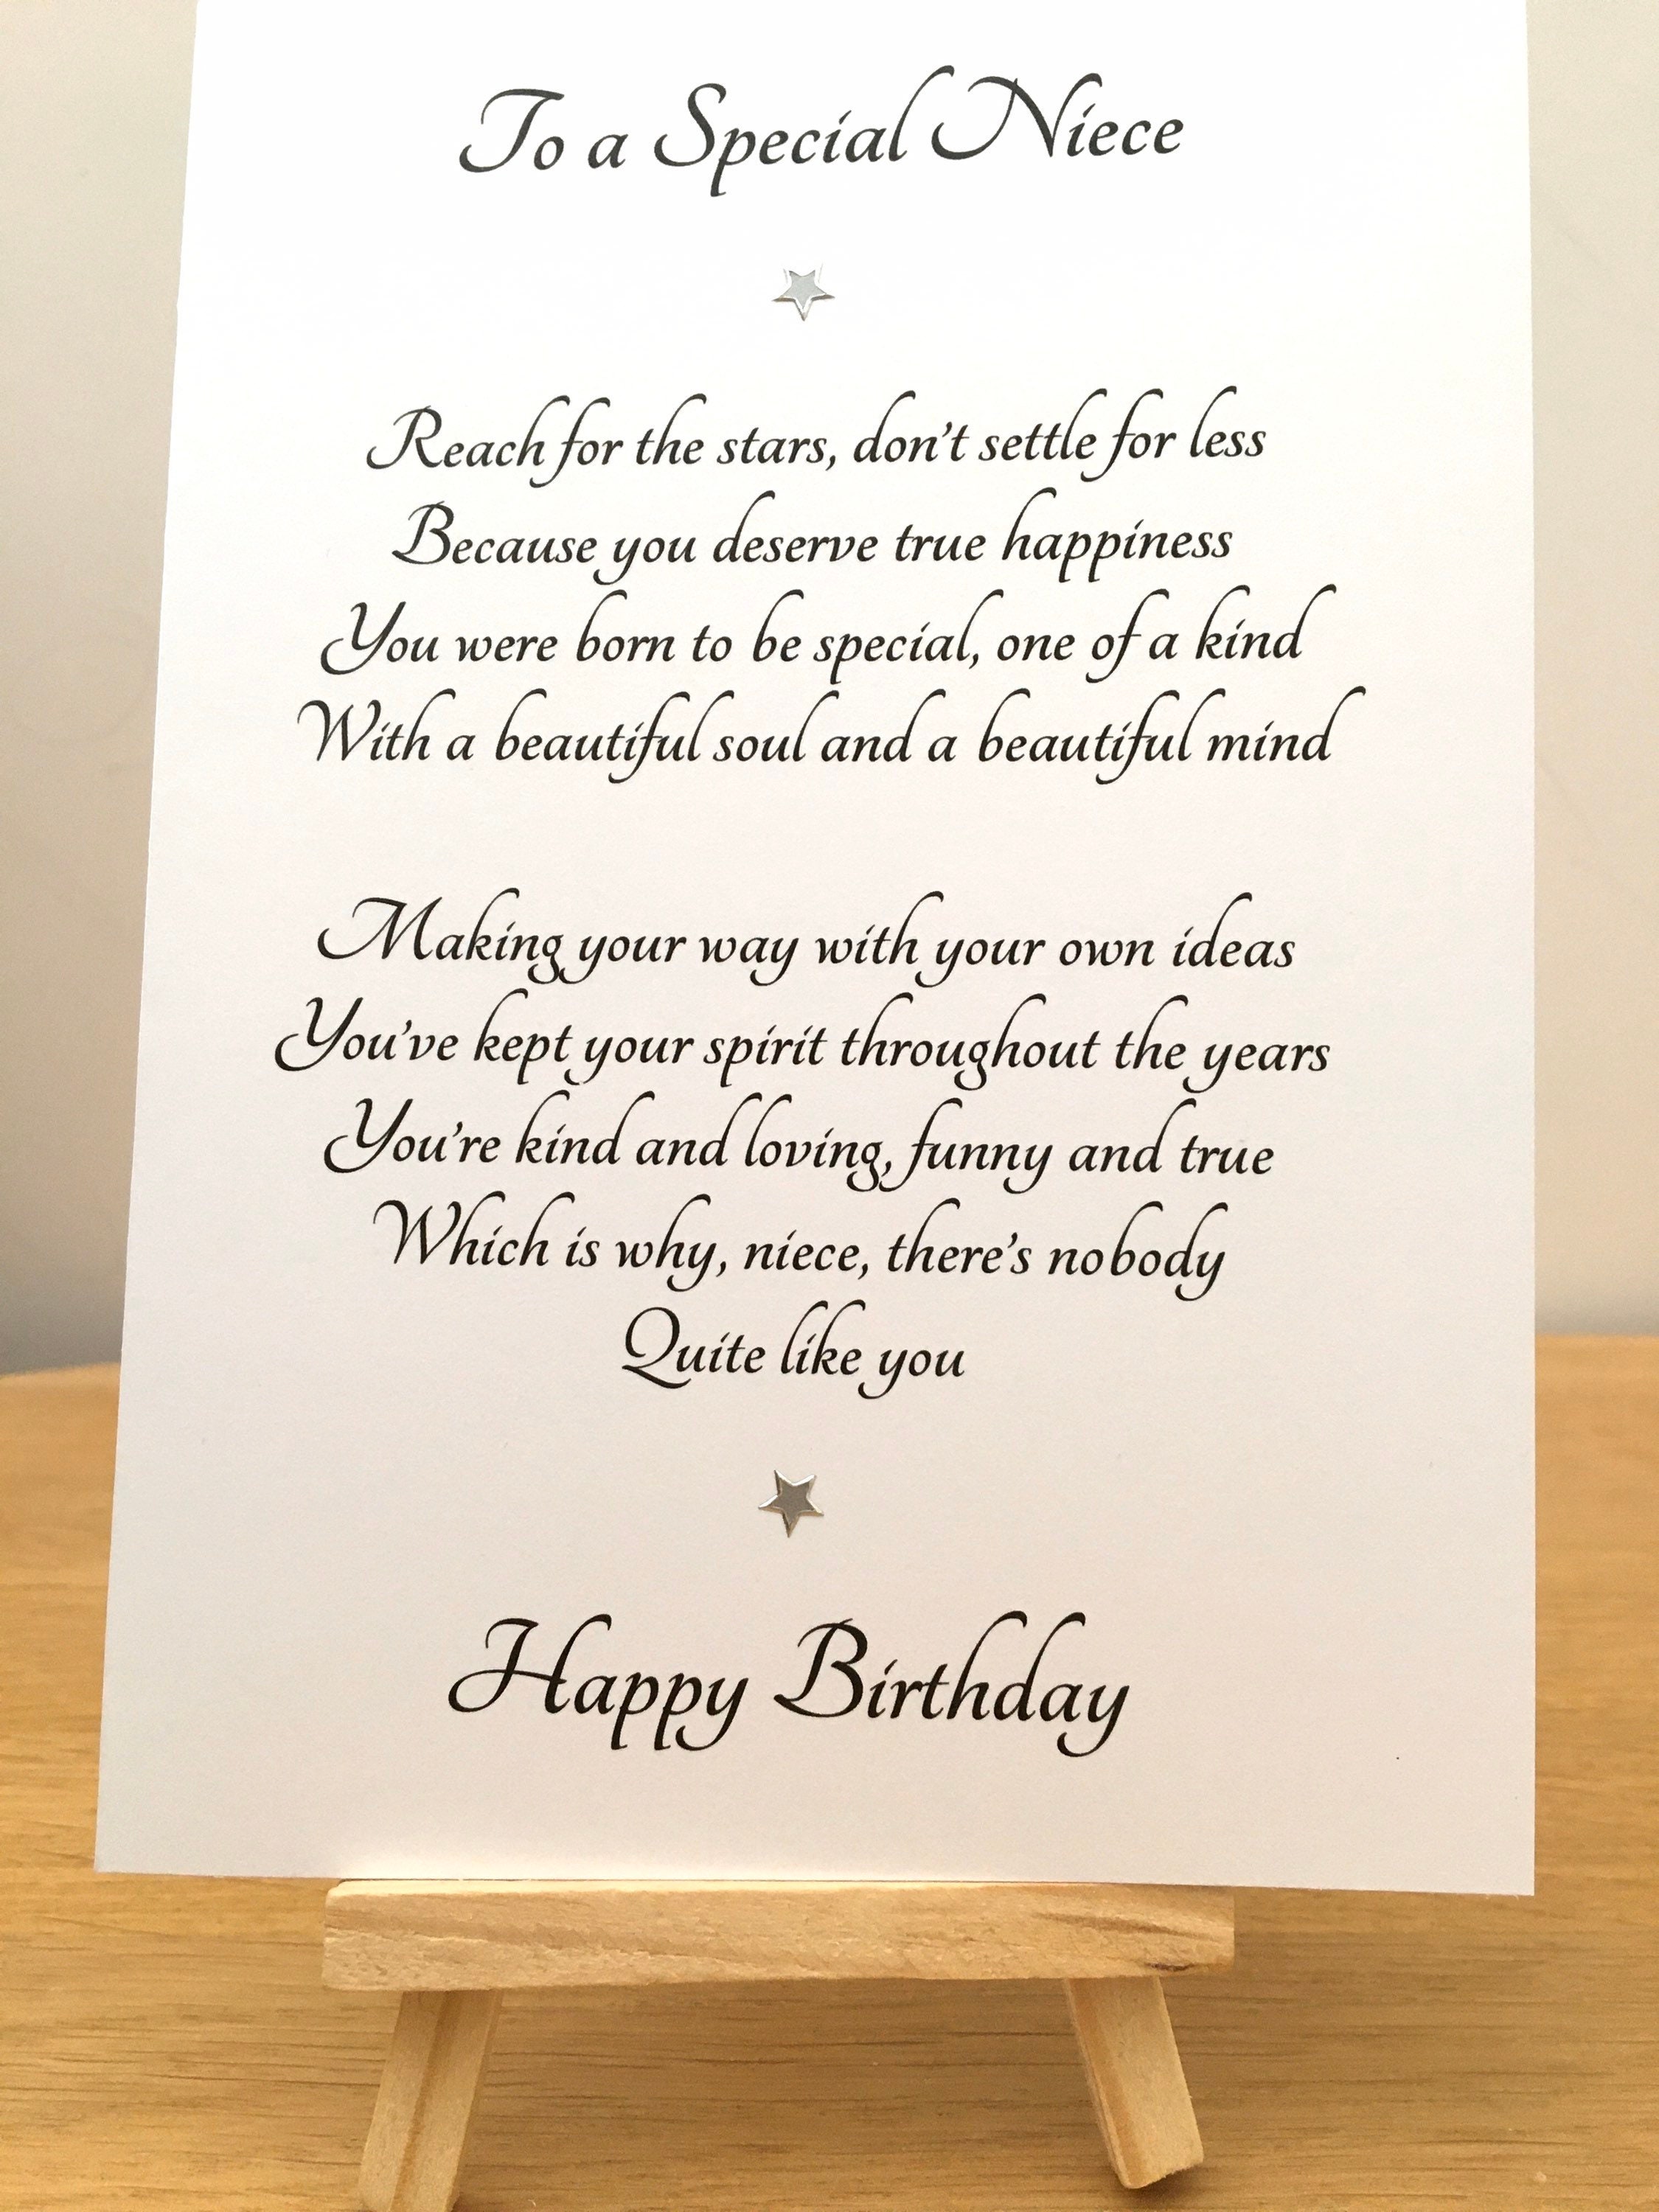 To a Special Niece
Reach for the stars, don't settle for less
Because you deserve true happiness
You were born to be special, one of a kind
With a beautiful soul and a beautiful mind
Making your way with your own ideas
You've kept your spirit throughout the years
You're kind and loving, funny and true
Which is why, niece, there's nobody
Quite like you
Happy Birthday